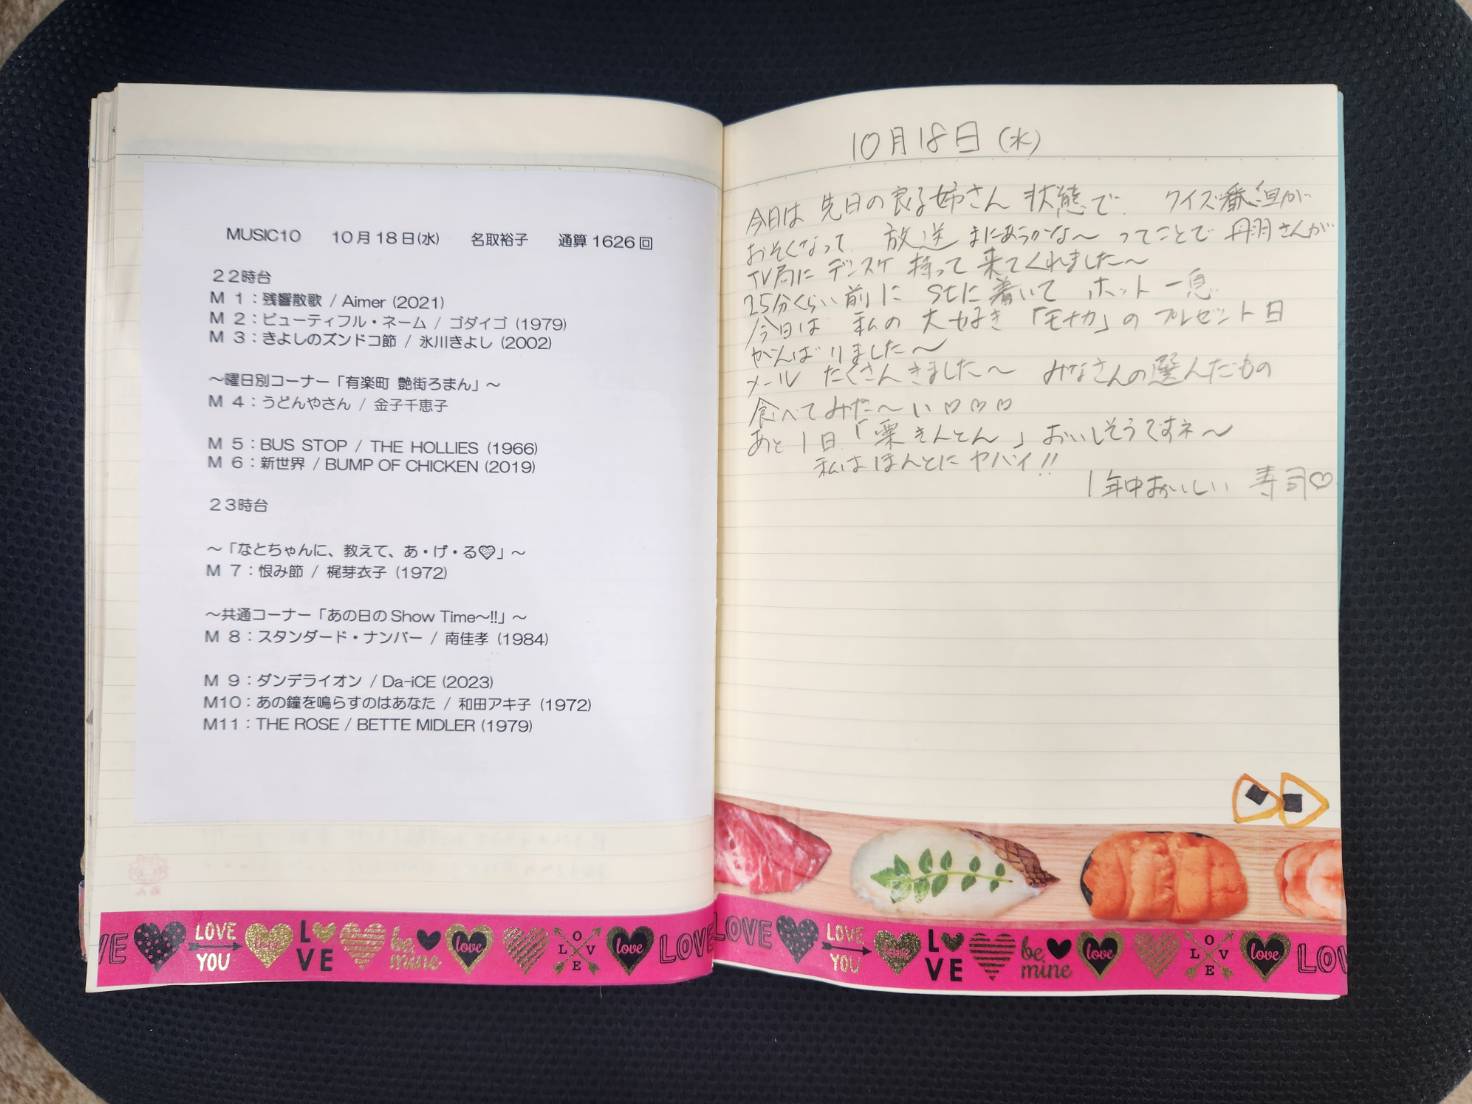 MUSIC10 10月18日(水) 名取裕子 通算1626回
22時台
M 1：残響散歌 / Aimer (2021)
M 2：ビューティフル・ネーム / ゴダイゴ (1979)
M 3：きよしのズンドコ節 / 氷川きよし (2002)
～曜日別コーナー「有楽町 艶街ろまん」～
M 4：うどんやさん / 金子千恵子
M 5：BUS STOP / THE HOLLIES (1966)
M 6：新世界 / BUMP OF CHICKEN (2019)
23時台
～「なとちゃんに、教えて、あ・げ・る♡」～
M 7：恨み節 / 梶芽衣子 (1972)
～共通コーナー「あの日のShow Time～!!」～
M 8：スタンダード・ナンバー / 南佳孝 (1984)
M 9：ダンデライオン / Da-iCE (2023)
M10：あの鐘を鳴らすのはあなた / 和田アキ子 (1972)
M11：THE ROSE / BETTE MIDLER (1979)
10月18日(水)
今日は 先日の良る姉さん 状態で クイズ番組が
おそくなって 放送 まにあうかな～ ってことで 丹羽さんが
TV局に デンスケ 持って 来てくれました～
25分くらい前に Stに着いて ホット一息
今日は 私の 大好き 「モナカ」の プレゼント日
がんばりました～
メール たくさんきました～ みなさんの選んだもの
食べてみた～い♡♡♡
あと1日「栗きんとん」おいしそうですネ～
私はほんとに ヤバイ!!
1年中おいしい 寿司♡
VE LOVE YOU love LOVE be mine love LOVE love LOVE
LOVE LOVE YOU love LOVE be mine love LOVE love LOV